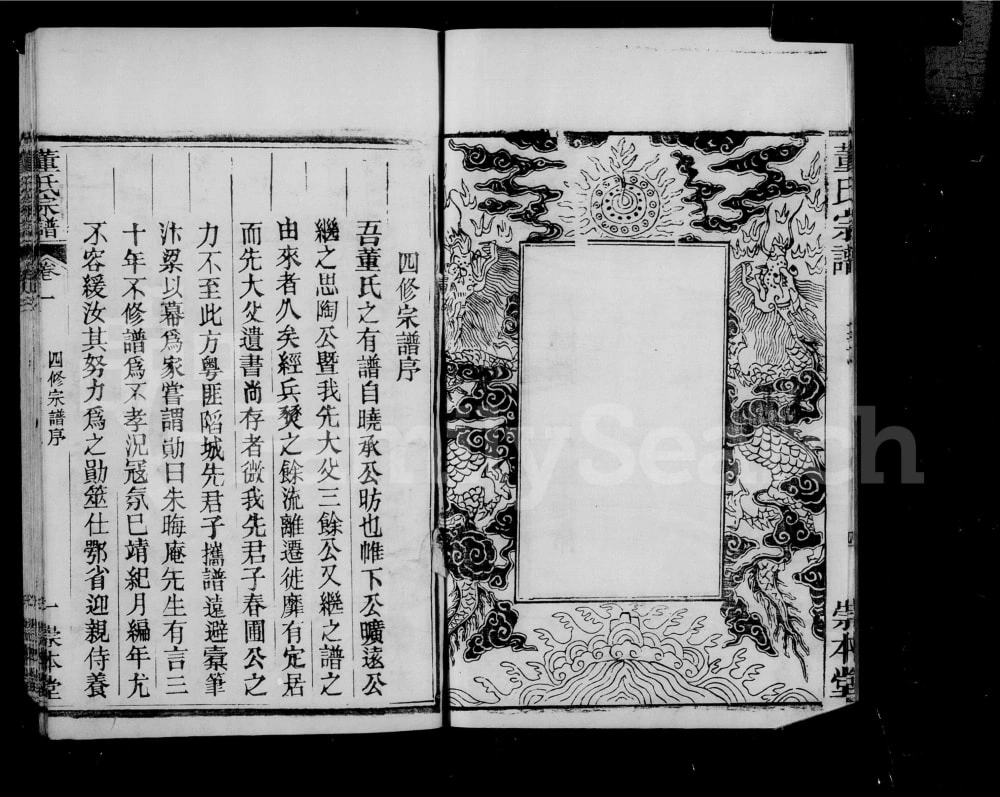 董氏宗譜
崇本堂
四修宗譜序
吾董氏之有譜自曉承公昉也帷下公曠遠公
繼之思陶公暨我先大父三餘公又繼之譜之
由來者久矣經兵燹之餘流離遷徙靡有定居
而先大父遺書尚存者微我先君子春圃公之
力不至此方粵匪䧟城先君子攜譜遠避橐筆
汴梁以幕爲家嘗謂勛曰朱晦庵先生有言三
十年不修譜爲不孝況冦氛已靖紀月編年尤
不容緩汝其努力爲之勛筮仕鄂省迎親侍養
董氏宗譜
卷一
四修宗譜序
一
崇本堂
FamilySearch